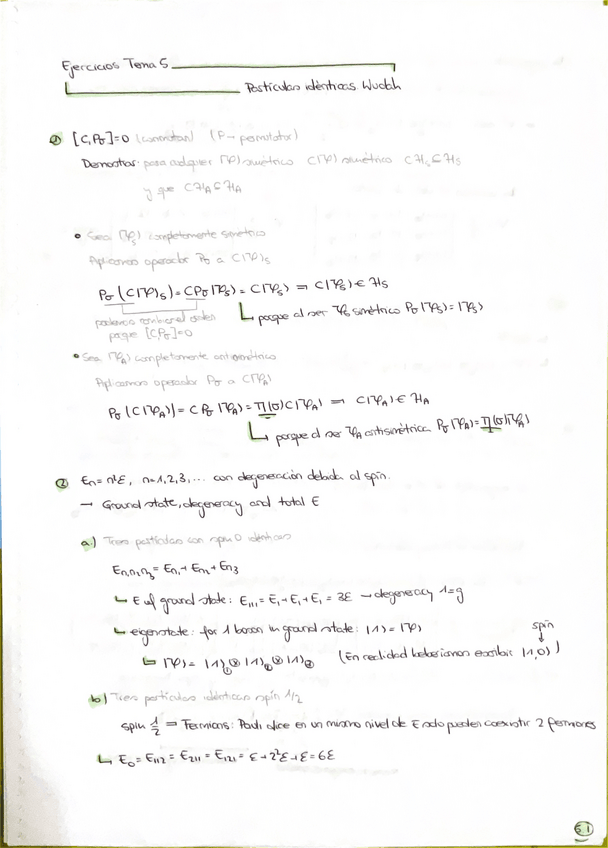 Ejercicios Tema 5
Partículas idénticas Wuolah
1 [C,Pσ]=0 (conmutan) (P→ permutator)
Demostrar: para cualquier |Ψ⟩ simétrico C|Ψ⟩ simétrico C ℋs ⊆ ℋs
y que C ℋA ⊆ ℋA
• Sea |Ψs⟩ completamente simétrico
Aplicamos operador Pσ a C|Ψ⟩s
Pσ (C|Ψ⟩s) = CPσ|Ψs⟩ = C|Ψs⟩ ⇒ C|Ψs⟩ ∈ ℋs
podemos cambiar el orden porque al ser Ψs simétrico Pσ|Ψs⟩=|Ψs⟩
porque [C,Pσ]=0
• Sea |ΨA⟩ completamente antisimétrico
Aplicamos operador Pσ a C|ΨA⟩
Pσ (C|ΨA⟩) = C Pσ |ΨA⟩ = η(σ) C|ΨA⟩ ⇒ C|ΨA⟩ ∈ ℋA
porque al ser ΨA antisimétrica Pσ|ΨA⟩ = η(σ)|ΨA⟩
2 En = n²ε, n=1,2,3,... con degeneración debida al spin.
→ Ground state, degeneracy and total E
a.) Tres partículas con spin 0 idénticas
En₁n₂n₃ = En₁ + En₂ + En₃
↳ E of ground state: E₁₁₁ = E₁+E₁+E₁ = 3ε → degeneracy 1=g
↳ eigenstate: for 1 boson in ground state: |1⟩ = |Ψ⟩
spin
↳ |Ψ⟩ = |1⟩① ⊗ |1⟩② ⊗ |1⟩③ (En realidad deberíamos escribir |1,0⟩)
b.) Tres partículas idénticas spin 1/2
spin 1/2 ⇒ Fermions: Pauli dice en un mismo nivel de E solo pueden coexistir 2 fermiones
↳ E₀ = E₁₁₂ = E₂₁₁ = E₁₂₁ = ε + 2²ε + ε = 6ε
5 1